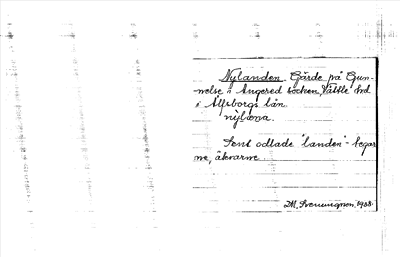 Nylanden. Gärde på Gun-
nelse i Angered socken, Vättle hd
i Älfsborgs län.
nýlana.
Sent odlade "landen"-
ne, åkrarne
M. Svenungsson. 1908.